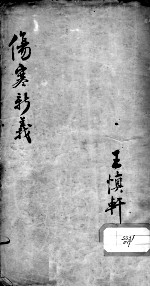 傷寒新義
王慎軒